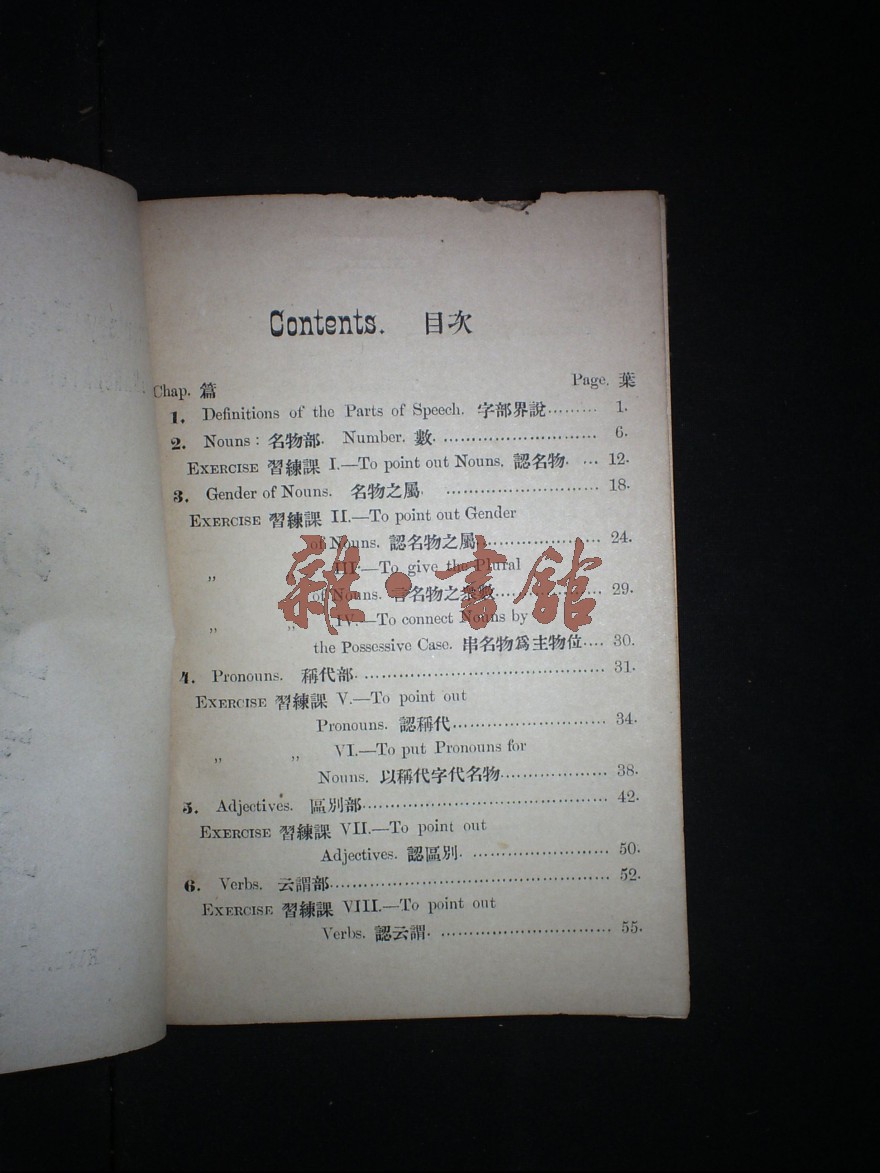 Contents. 目次
Chap. 篇 Page. 葉
1. Definitions of the Parts of Speech. 字部界說......... 1.
2. Nouns: 名物部. Number. 數. ............................ 6.
EXERCISE 習練課 I.—To point out Nouns. 認名物. ... 12.
3. Gender of Nouns. 名物之屬. ............................ 18.
EXERCISE 習練課 II.—To point out Gender
of Nouns. 認名物之屬...................... 24.
„ III.—To give the Plural
of Nouns. 言名物之衆數................... 29.
„ „ IV.—To connect Nouns by
the Possessive Case. 串名物爲主物位.... 30.
4. Pronouns. 稱代部.............................................. 31.
EXERCISE 習練課 V.—To point out
Pronouns. 認稱代............................ 34.
„ „ VI.—To put Pronouns for
Nouns. 以稱代字代名物.................... 38.
5. Adjectives. 區別部............................................. 42.
EXERCISE 習練課 VII.—To point out
Adjectives. 認區別. ......................... 50.
6. Verbs. 云謂部................................................... 52.
EXERCISE 習練課 VIII.—To point out
Verbs. 認云謂. ............................... 55.
雜·書舘